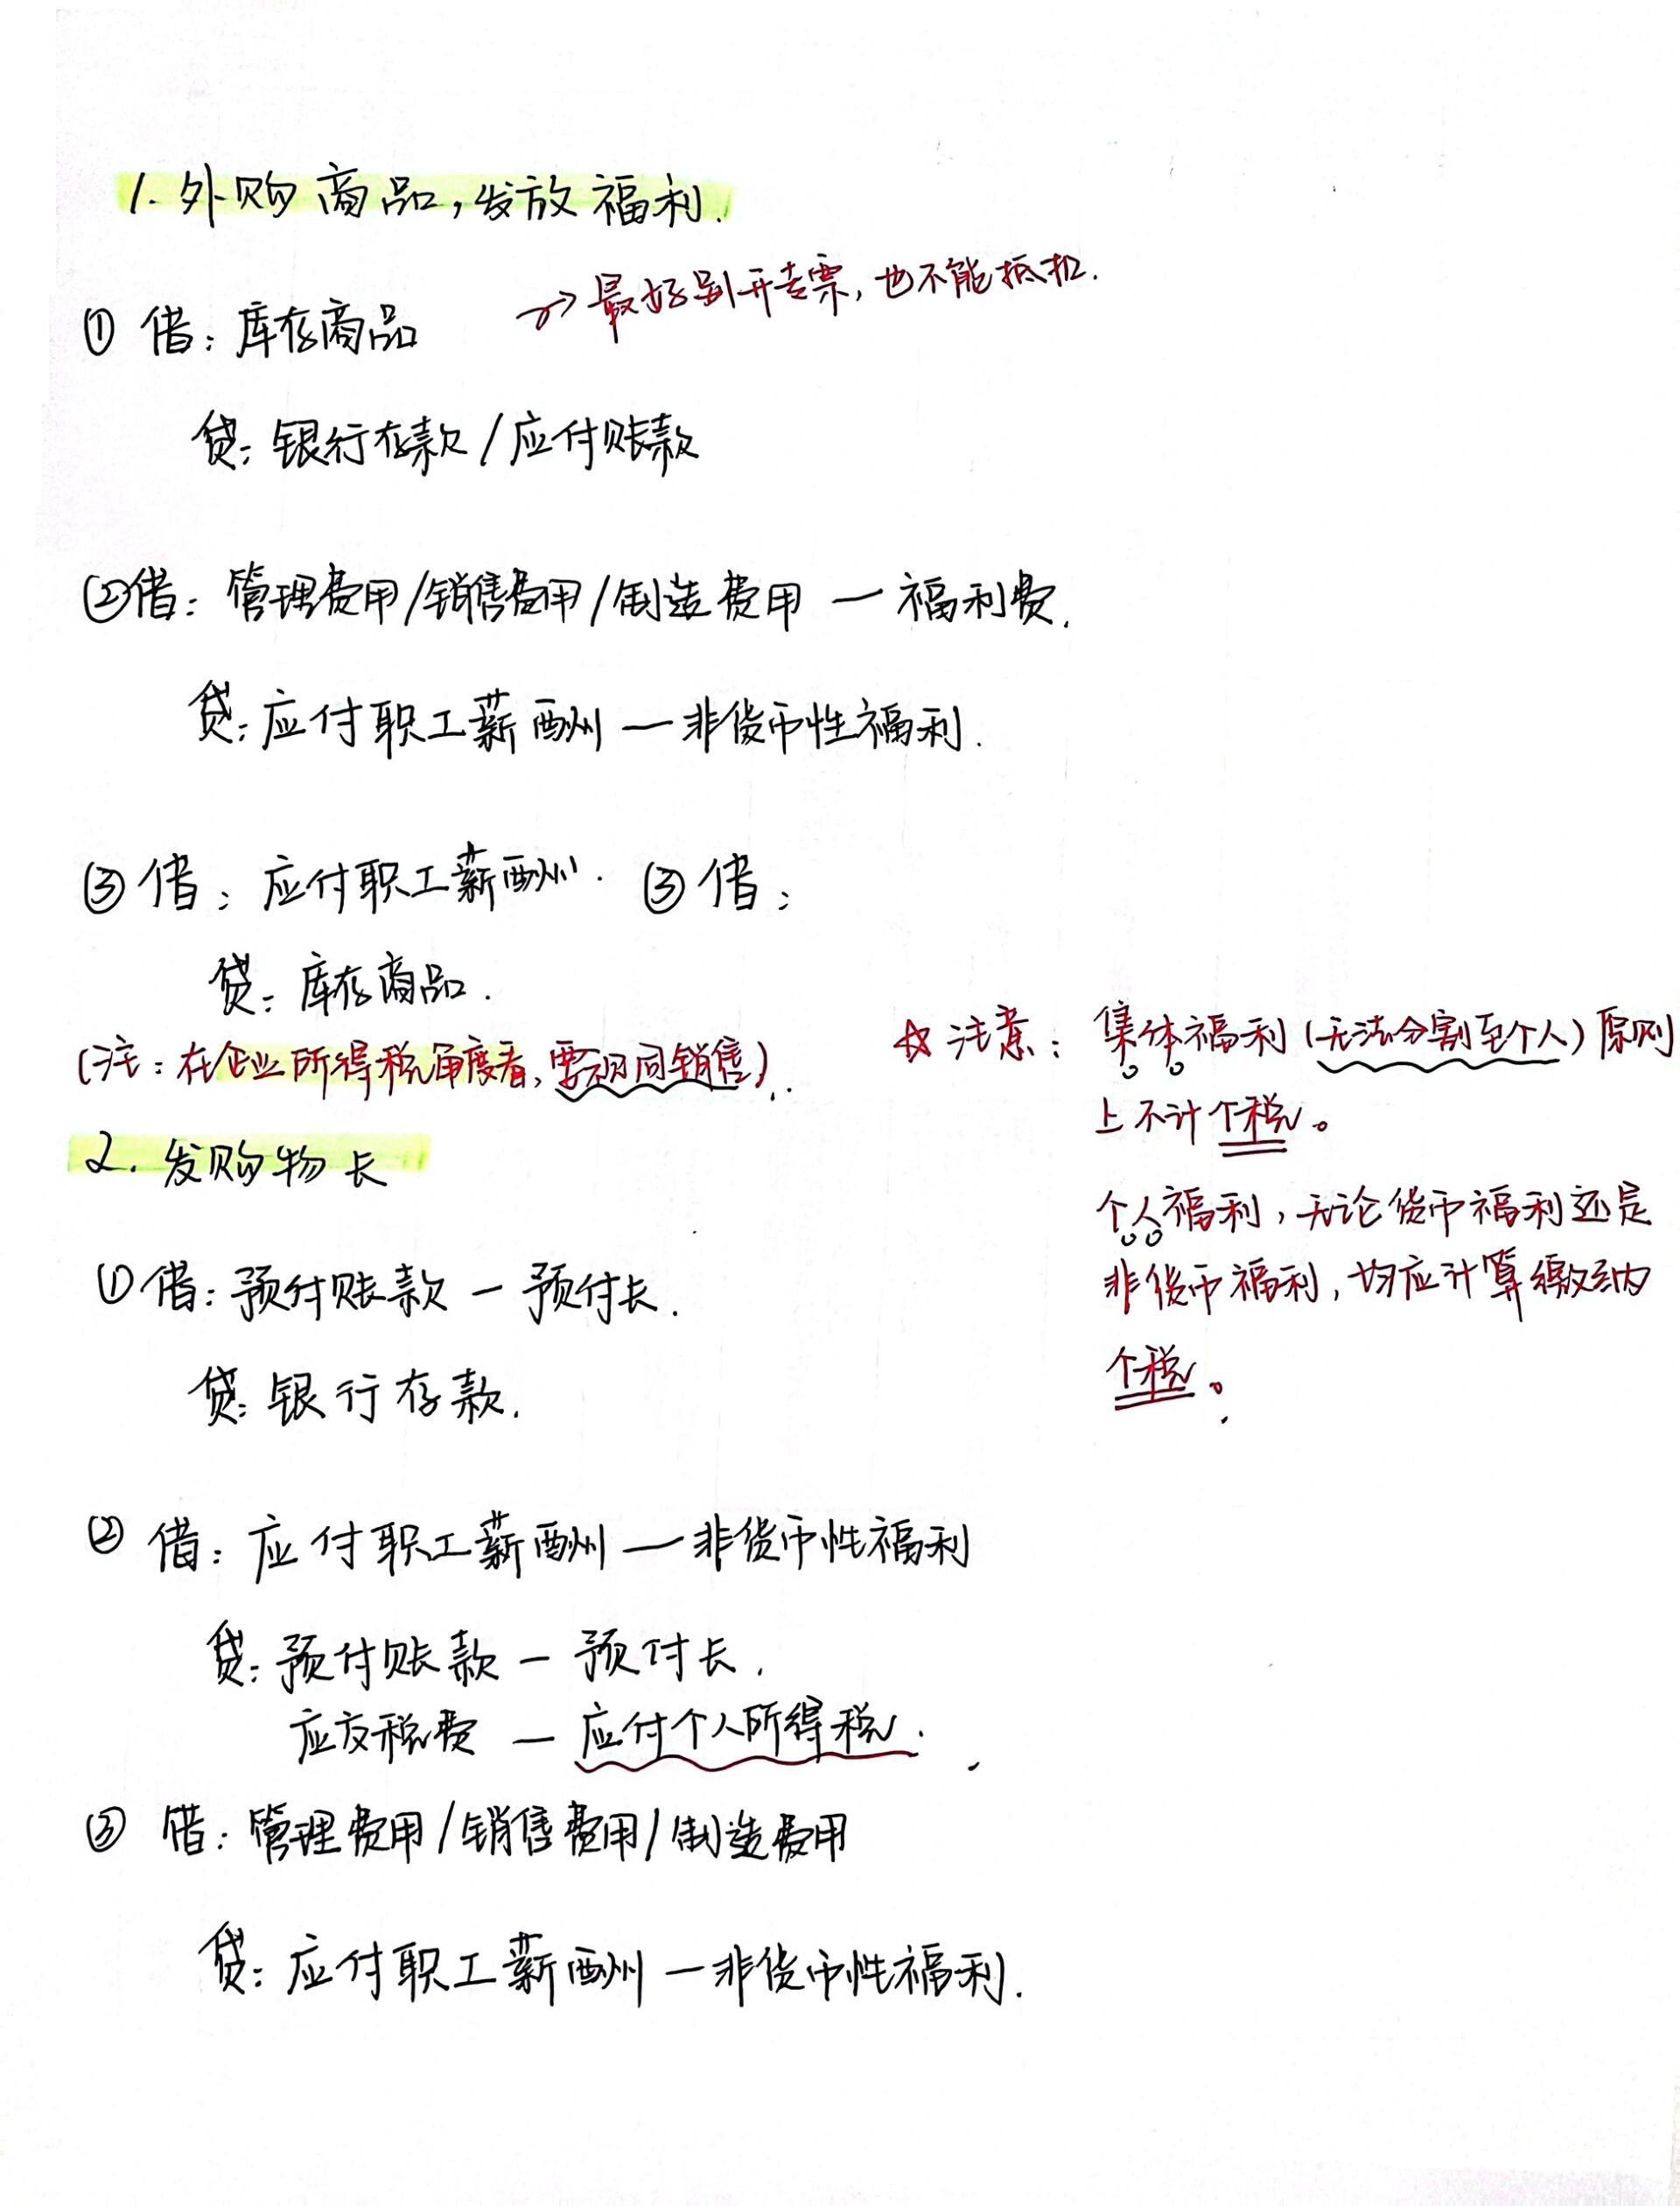 1. 外购商品,发放福利.
→ 最好别开专票,也不能抵扣.
① 借: 库存商品
贷: 银行存款/应付账款
②借: 管理费用/销售费用/制造费用 — 福利费.
贷: 应付职工薪酬 — 非货币性福利.
③ 借: 应付职工薪酬. ③ 借:
贷: 库存商品.
(注: 在企业所得税角度看,要视同销售).
☆ 注意: 集体福利(无法分割至个人)原则
上不计个税。
个人福利,无论货币福利还是
非货币福利,均应计算缴纳
个税。
2. 发购物长
① 借: 预付账款 — 预付长.
贷: 银行存款.
② 借: 应付职工薪酬 — 非货币性福利
贷: 预付账款 — 预付长.
应交税费 — 应付个人所得税.
③ 借: 管理费用/销售费用/制造费用
贷: 应付职工薪酬 — 非货币性福利.